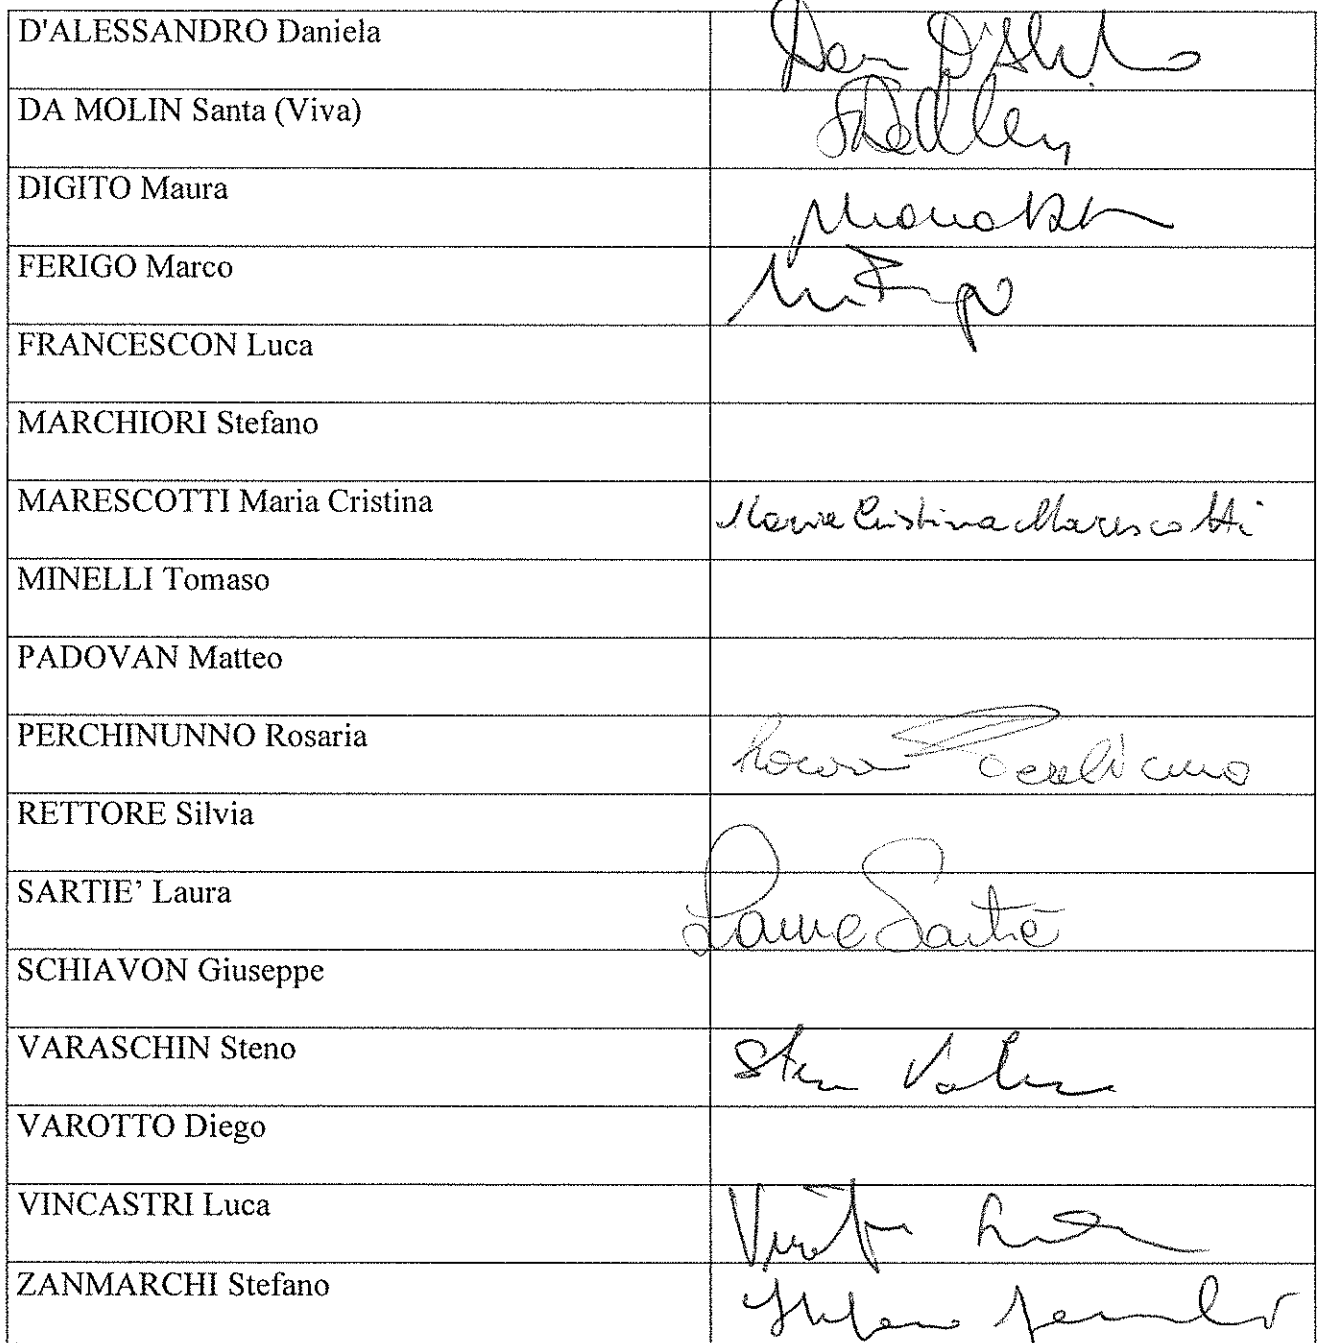 D'ALESSANDRO Daniela
DA MOLIN Santa (Viva)
DIGITO Maura
FERIGO Marco
FRANCESCON Luca
MARCHIORI Stefano
MARESCOTTI Maria Cristina Maria Cristina Marescotti
MINELLI Tomaso
PADOVAN Matteo
PERCHINUNNO Rosaria
RETTORE Silvia
SARTIE’ Laura Laura Sartiè
SCHIAVON Giuseppe
VARASCHIN Steno
VAROTTO Diego
VINCASTRI Luca
ZANMARCHI Stefano